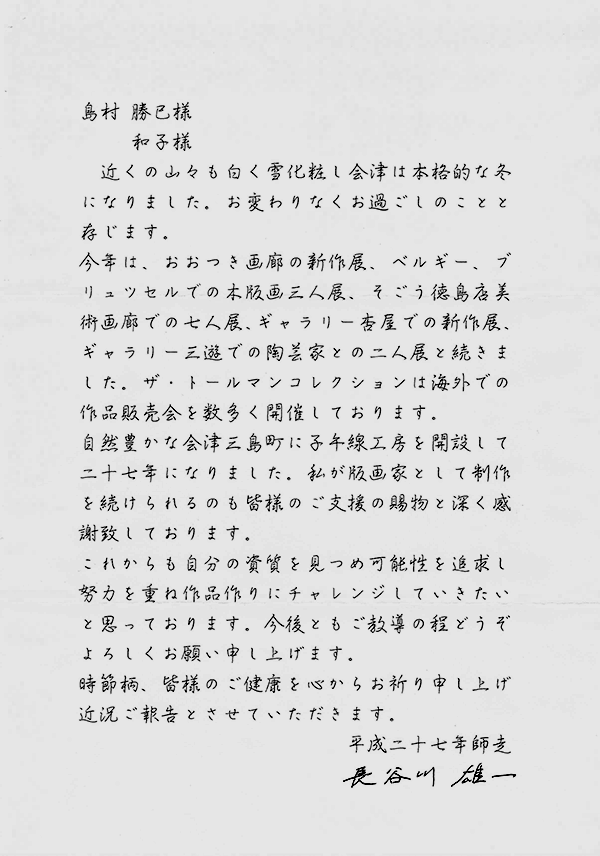 島村 勝巳様
和子様
近くの山々も白く雪化粧し会津は本格的な冬
になりました。お変わりなくお過ごしのことと
存じます。
今年は、おおつき画廊の新作展、ベルギー、ブ
リュッセルでの木版画三人展、そごう徳島店美
術画廊での七人展、ギャラリー杏屋での新作展、
ギャラリー三遊での陶芸家との二人展と続きま
した。ザ・トールマンコレクションは海外での
作品販売会を数多く開催しております。
自然豊かな会津三島町に子午線工房を開設して
二十七年になりました。私が版画家として制作
を続けられるのも皆様のご支援の賜物と深く感
謝致しております。
これからも自分の資質を見つめ可能性を追求し
努力を重ね作品作りにチャレンジしていきたい
と思っております。今後ともご教導の程どうぞ
よろしくお願い申し上げます。
時節柄、皆様のご健康を心からお祈り申し上げ
近況ご報告とさせていただきます。
平成二十七年師走
長谷川 雄一